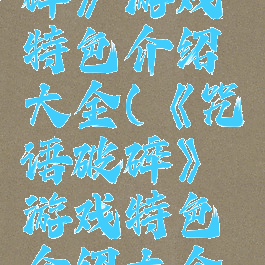 碎》游戏
特色介绍
大全(《咒
语破碎》
游戏特色
介绍大全